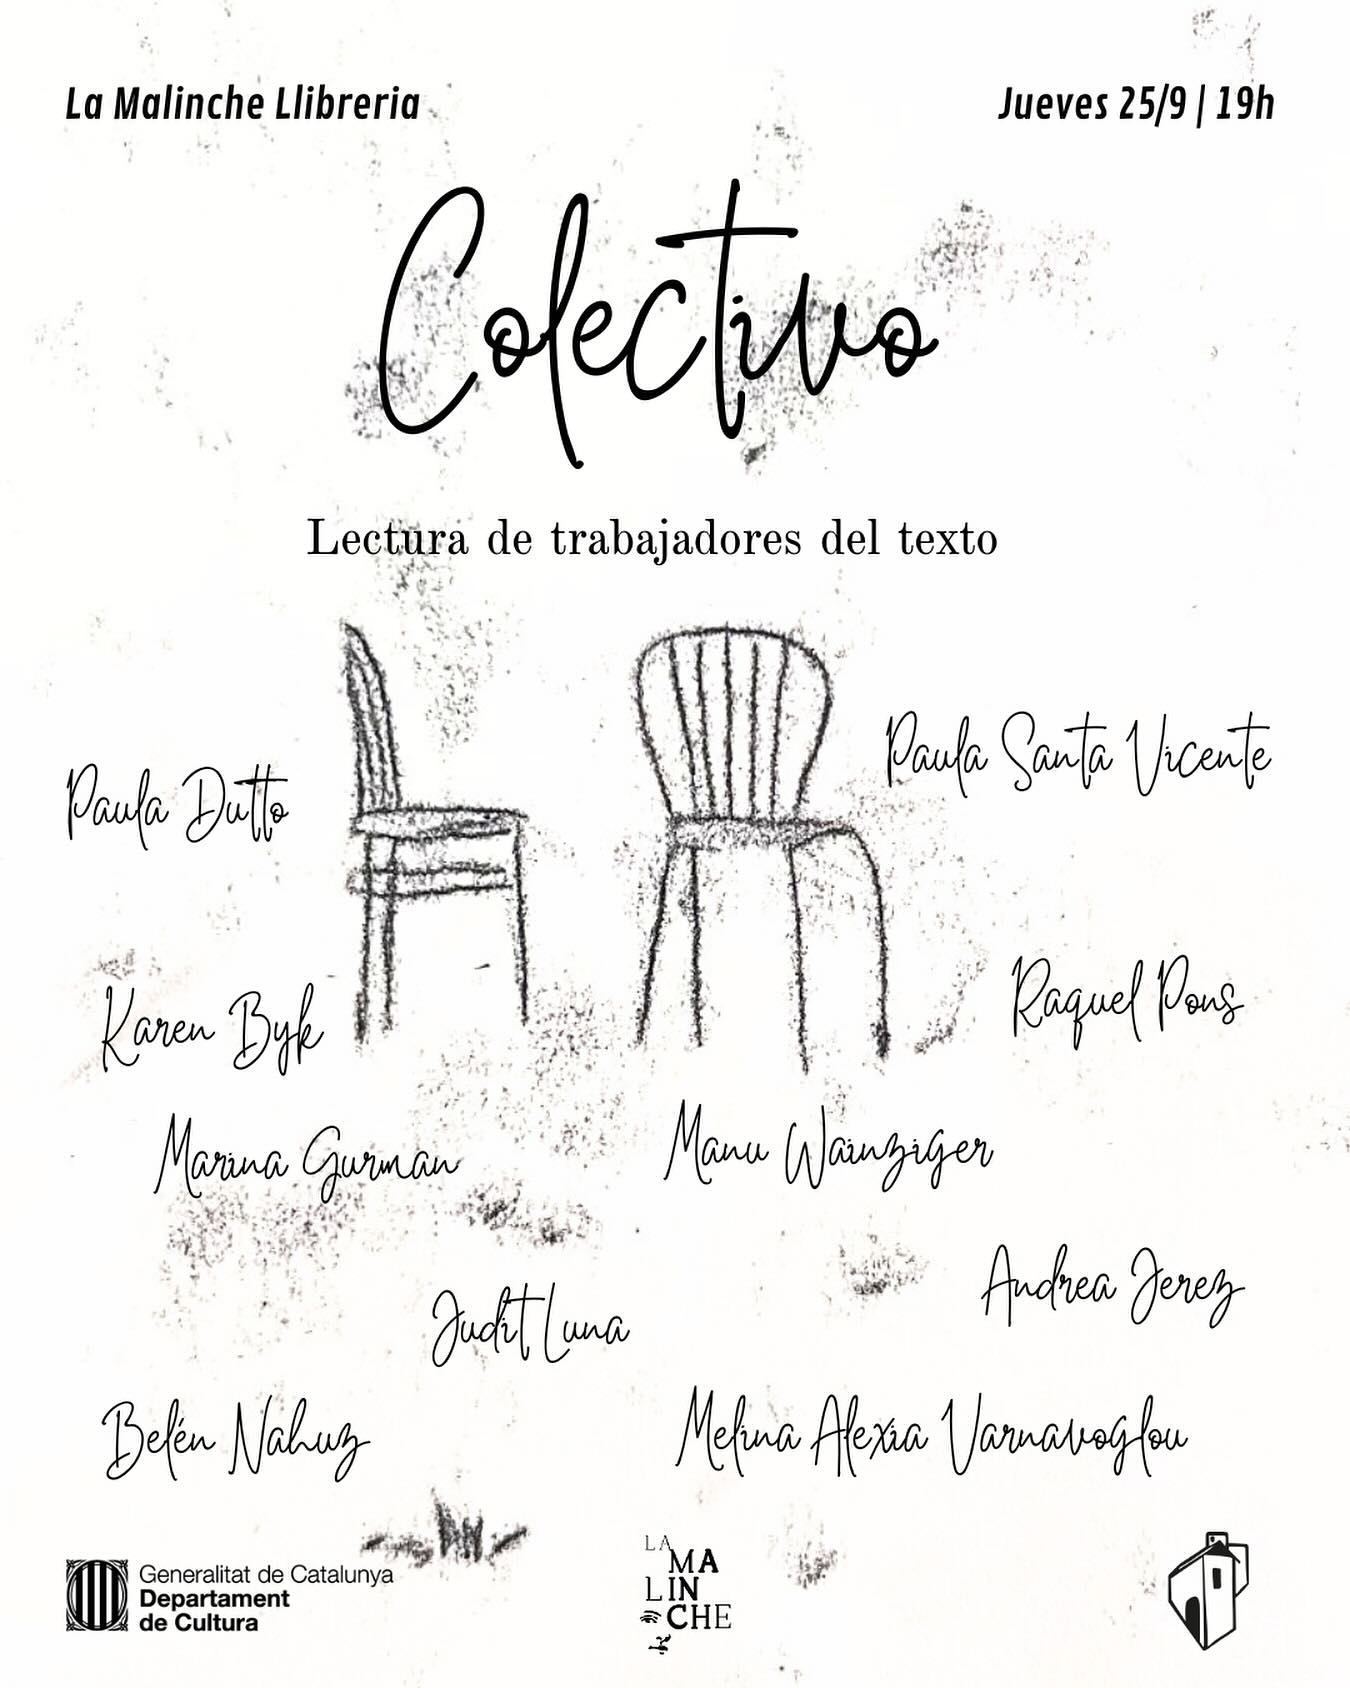 La Malinche Llibreria
Jueves 25/9 | 19h
Colectivo
Lectura de trabajadores del texto
Paula Santa Vicente
Paula Dutto
Raquel Pons
Karen Byk
Marina Gurman
Manu Wainziger
Andrea Jerez
Judit Luna
Belén Nahuz
Melina Alexia Varnavoglou
Generalitat de Catalunya
Departament
de Cultura
LA
MA
LIN
CHE